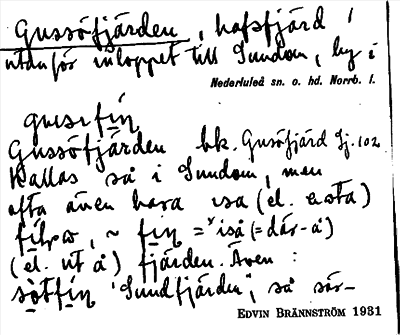 Gussöfjärden, hafsfjärd i
utanför inloppet till Sundom, by i
Nederluleå sn. o. hd. Norrb. l.
gusɩfiṇ
Gussöfjärden bk. Gusöfjärd Gj. 102
Kallas så i Sundom, men
ofta även bara isa (el. asta)
~ fiṇ = iså (= där-å)
(el. ut å) fjärden. Även:
sötfiṇ 'Sundfjärden', så sär-
EDVIN BRÄNNSTRÖM 1931